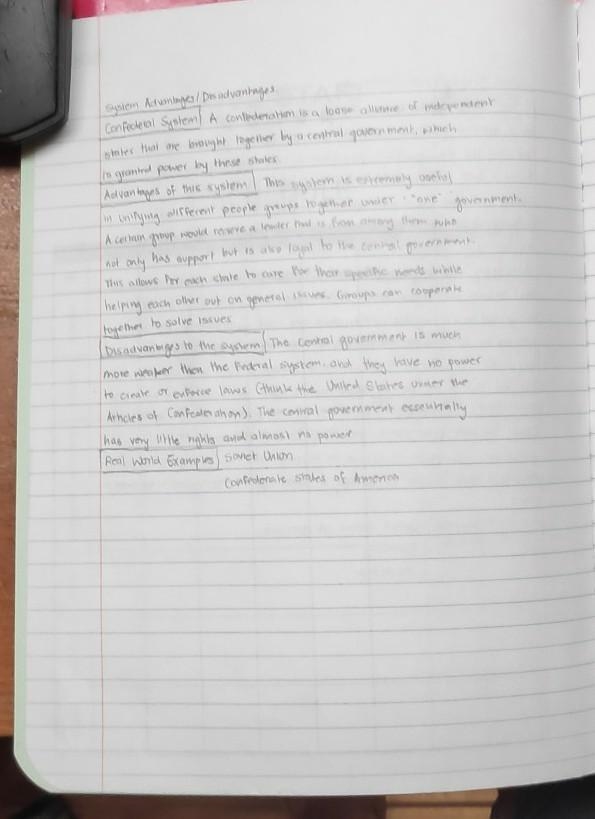 System Advantages/Disadvantages
Confederal System A confederation is a loose alliance of independent
states that are brought together by a central government, which
is granted power by these states.
Advantages of this system This system is extremely useful
in unifying different people groups together under "one" government.
A certain group would receive a leader that is from among them who
not only has support but is also loyal to the central government.
This allows for each state to care for their specific needs while
helping each other out on general issues. Groups can cooperate
together to solve issues
Disadvantages to the system The central government is much
more weaker then the Federal system, and they have no power
to create or enforce laws (think the United States under the
Articles of Confederation). The central government essentially
has very little rights and almost no power
Real World Examples Soviet Union
Confederate States of America